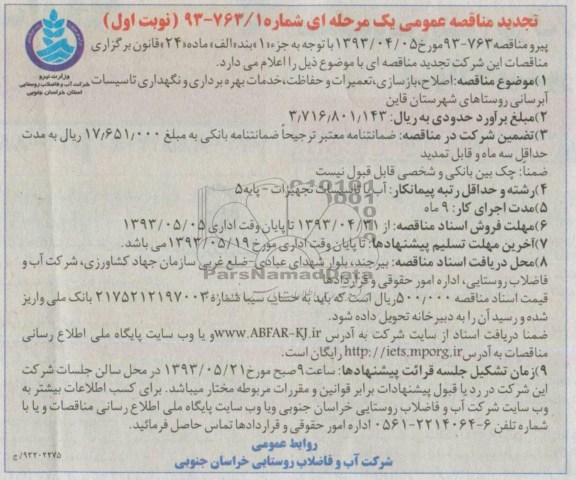 تجدید مناقصه عمومی یک مرحله ای شماره ۹۳-۷۶۳/۱ (نوبت اول)
وزارت نیرو
شرکت آب و فاضلاب روستایی
استان خراسان جنوبی
پیرو مناقصه ۷۶۳-۹۳ مورخ ۱۳۹۳/۰۴/۰۵ با توجه به جزء «۱» بند «الف» ماده «۲۴» قانون برگزاری
مناقصات این شرکت تجدید مناقصه ای با موضوع ذیل را اعلام می دارد.
۱) موضوع مناقصه: اصلاح، بازسازی، تعمیرات و حفاظت، خدمات بهره برداری و نگهداری تاسیسات
آبرسانی روستاهای شهرستان قاین
۲) مبلغ برآورد حدودی به ریال: ۳٫۷۱۶٫۸۰۱٫۱۴۳
۳) تضمین شرکت در مناقصه: ضمانتنامه معتبر ترجیحاً ضمانتنامه بانکی به مبلغ ۱۷٫۶۵۱٫۰۰۰ ریال به مدت
حداقل سه ماه و قابل تمدید
ضمناً: چک بین بانکی و شخصی قابل قبول نیست
۴) رشته و حداقل رتبه پیمانکار: آب یا تاسیسات تجهیزات - پایه ۵
۵) مدت اجرای کار: ۹ ماه
۶) مهلت فروش اسناد مناقصه: از ۱۳۹۳/۰۴/۳۱ تا پایان وقت اداری ۱۳۹۳/۰۵/۰۵
۷) آخرین مهلت تسلیم پیشنهادها: تا پایان وقت اداری مورخ ۱۳۹۳/۰۵/۱۹ می باشد.
۸) محل دریافت اسناد مناقصه: بیرجند، بلوار شهدای عبادی-ضلع غربی سازمان جهاد کشاورزی، شرکت آب و
فاضلاب روستایی، اداره امور حقوقی و قراردادها
قیمت اسناد مناقصه ۵۰۰/۰۰۰ ریال است که باید به حساب سیبا شماره ۲۱۷۵۲۱۲۱۹۷۰۰۳ بانک ملی واریز
شده و رسید آن را به دبیرخانه تحویل داده شود.
ضمنا دریافت اسناد از سایت شرکت به آدرس www.ABFAR-KJ.ir و یا وب سایت پایگاه ملی اطلاع رسانی
مناقصات به آدرس http://iets.mporg.ir رایگان است.
۹) زمان تشکیل جلسه قرائت پیشنهادها: ساعت ۹ صبح مورخ ۱۳۹۳/۰۵/۲۱ در محل سالن جلسات شرکت
این شرکت در رد یا قبول پیشنهادات برابر قوانین و مقررات مربوطه مختار میباشد. برای کسب اطلاعات بیشتر به
وب سایت شرکت آب و فاضلاب روستایی خراسان جنوبی ویا وب سایت پایگاه ملی اطلاع رسانی مناقصات و یا با
شماره تلفن ۶-۲۲۱۴۰۶۴-۰۵۶۱ اداره امور حقوقی و قراردادها تماس حاصل فرمائید.
روابط عمومی
شرکت آب و فاضلاب روستایی خراسان جنوبی
۹۲۲۰۲۲۷۵/ج
ParsNamadData